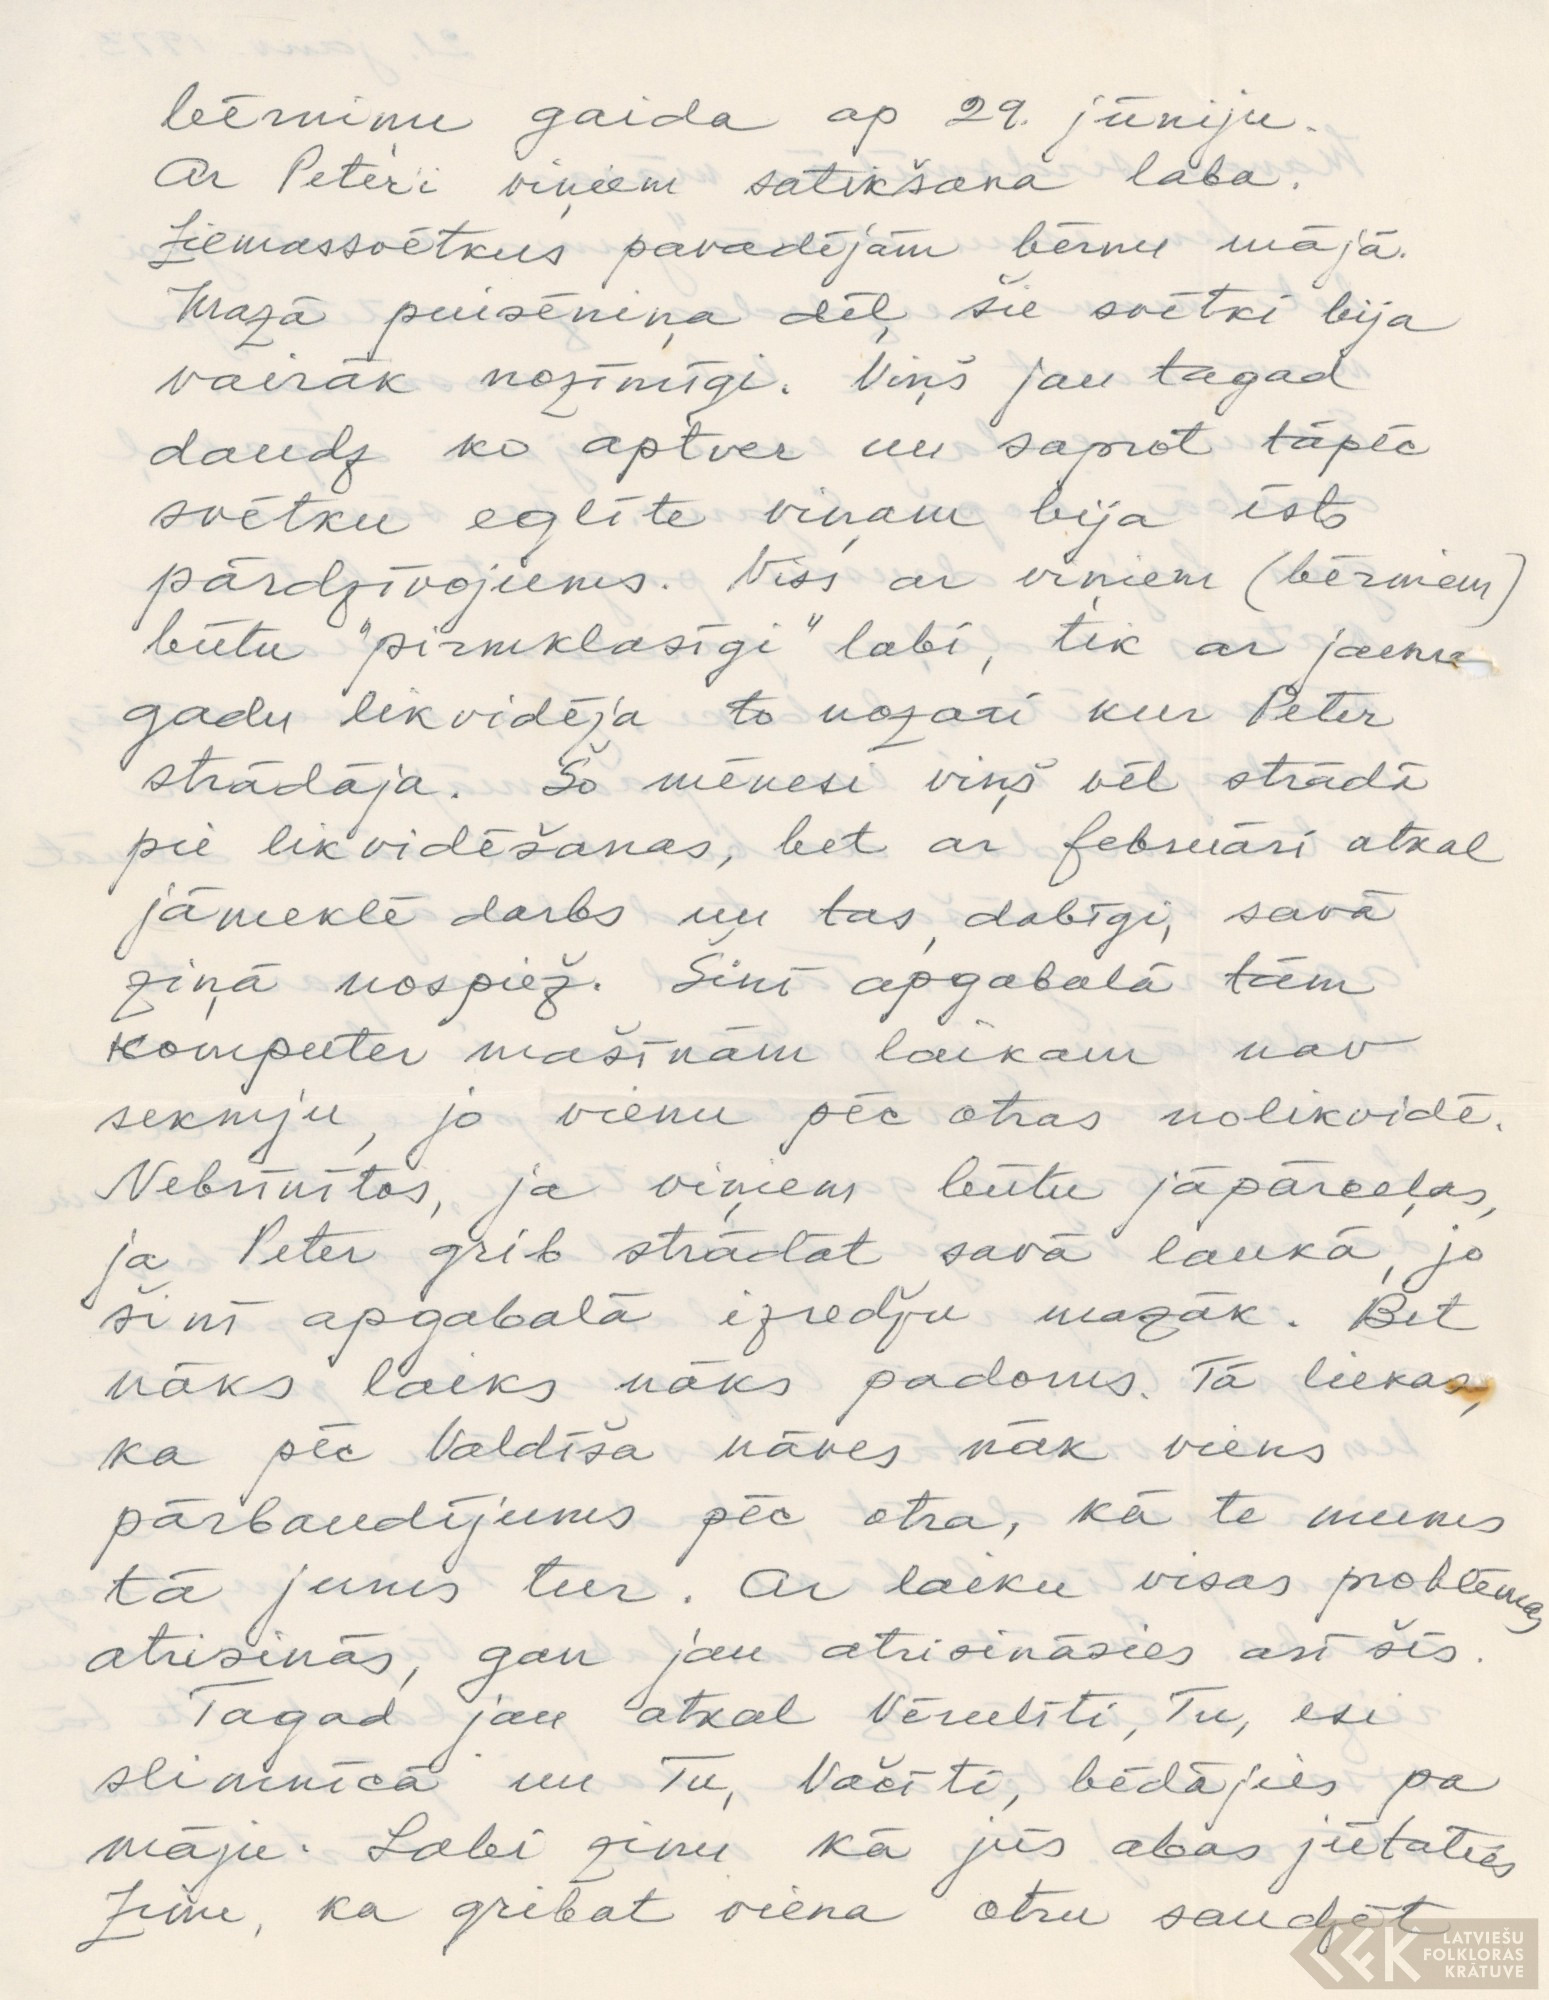 bērniņu gaida ap 29. jūniju.
Ar Peter'i viņiem satikšana laba.
Ziemassvētkus pavadījām bērnu mājā.
Mazā puisēniņa dēļ šie svētki bija
vairāk nozīmīgi. Viņš jau tagad
daudz ko aptver un saprot tāpēc
svētku eglīte viņam bija īsts
pārdzīvojums. Viss ar viņiem (bērniem)
būtu "pirmklasīgi" labi, tik ar jaunu
gadu likvidēja to nozari kur Peter
strādāja. Šo mēnesi viņš vēl strādā
pie likvidēšanas, bet ar februāri atkal
jāmeklē darbs un tas, dabīgi, savā
ziņā nospiež. Šinī apgabalā tām
komputer mašīnām laikam nav
sekmju, jo vienu pēc otras nolikvidē.
Nebrīnītos, ja viņiem būtu jāpārceļas,
ja Peter grib strādāt savā laukā, jo
šinī apgabalā izredžu mazāk. Bet
nāks laiks nāks padoms. Tā liekas,
ka pēc Valdīša nāves nāk viens
pārbaudījums pēc otra, kā te mums
tā jums tur. Ar laiku visas problēmas
atrisinās, gan jau atrisināsies arī šīs.
Tagad jau atkal Vērulīti, Tu, esi
slimnīcā un Tu, Vačīti, bēdājies pa
māju. Labi zinu kā jūs abas jūtaties
Zinu, ka gribat viena otru saudzēt
LATVIEŠU
FOLKLORAS
KRĀTUVE